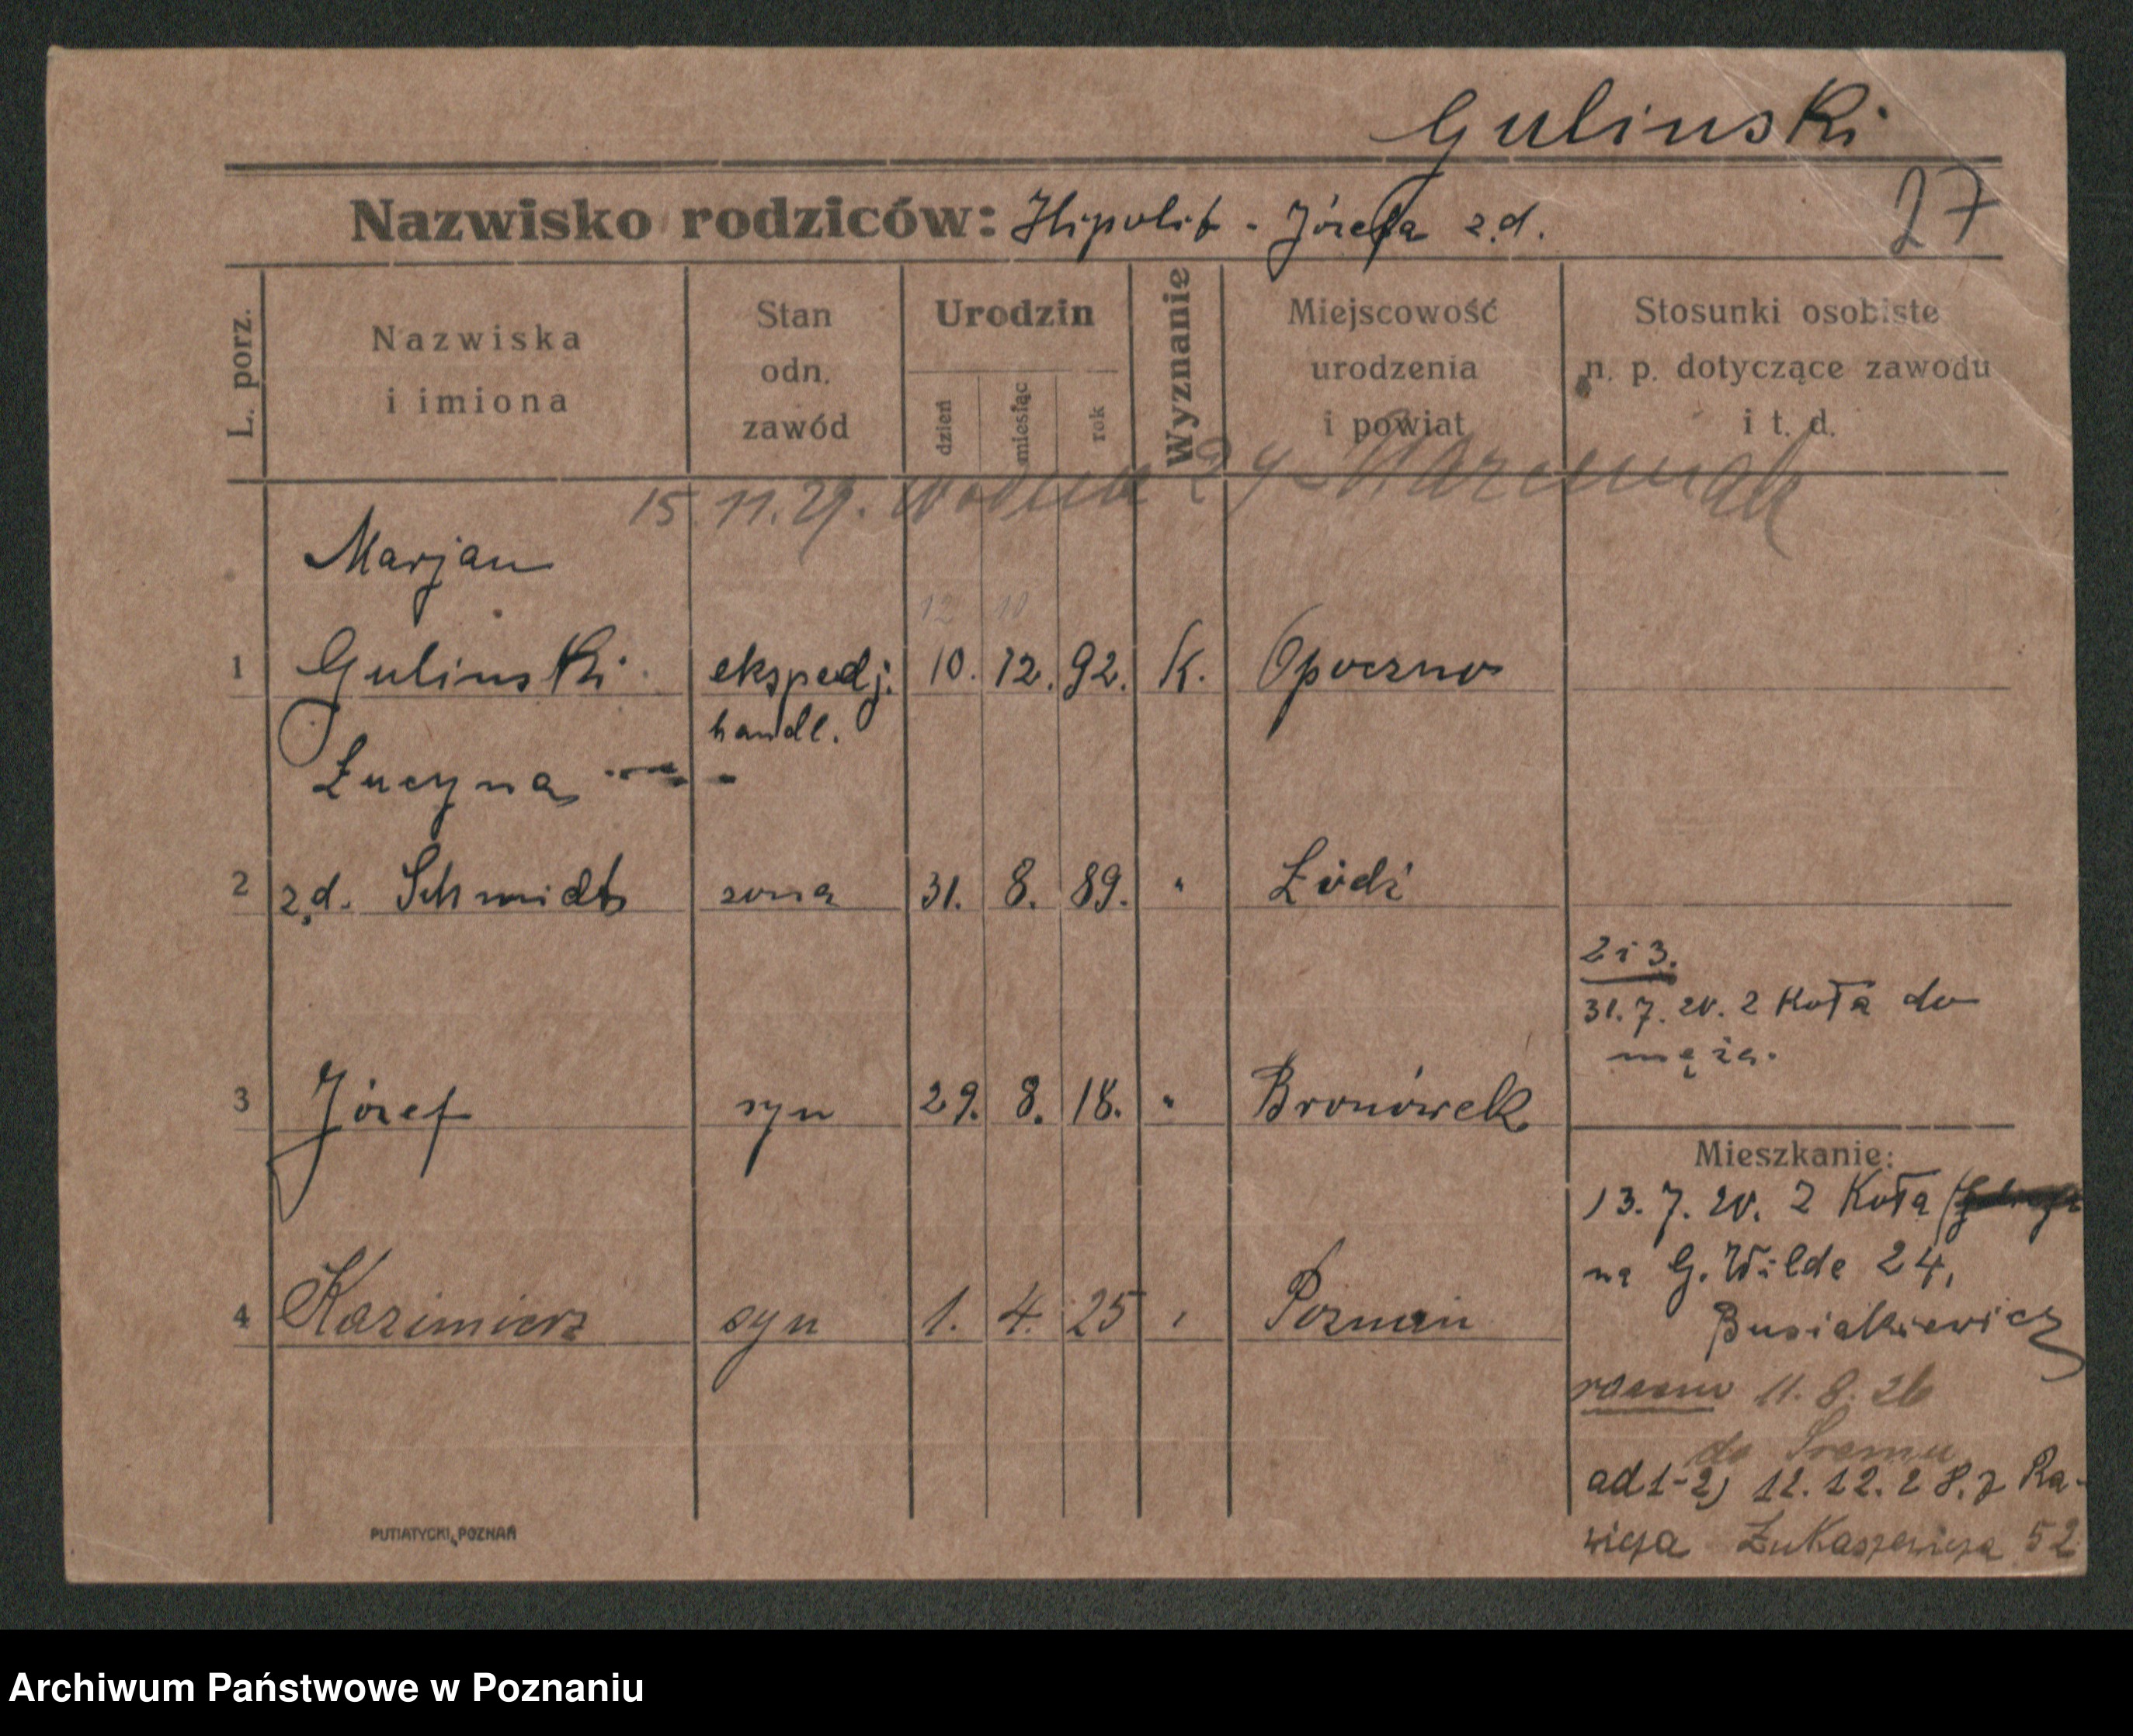 Gulinski
Nazwisko rodziców: Hipolit - Józefa z.d.
27
L. porz.
Nazwiska
i imiona
Stan
odn.
zawód
Urodzin
dzień
miesiąc
rok
Wyznanie
Miejscowość
urodzenia
i powiat
Stosunki osobiste
n. p. dotyczące zawodu
i t. d.
15.11.29. Wodna 24 - Marciniak
Marjan
12 10
1 Gulinski ekspedj. 10. 12. 92. K. Opoczno
handl.
Łucyna
2 z.d. Schmidt zona 31. 8. 89. " Łódź
2 i 3.
31.7.20. z Koła do
męża.
3 Józef syn 29. 8. 18. " Bronówek
Mieszkanie:
13.7.20. z Koła
na G. Wilde 24,
Busiakiewicz
4 Kazimierz syn 1. 4. 25 " Poznań
razem 11.8.26
do Śremu
ad 1-2) 12.12.28. z Ra-
wicza Łukaszewicza 52
PUTIATYCKI, POZNAŃ
Archiwum Państwowe w Poznaniu